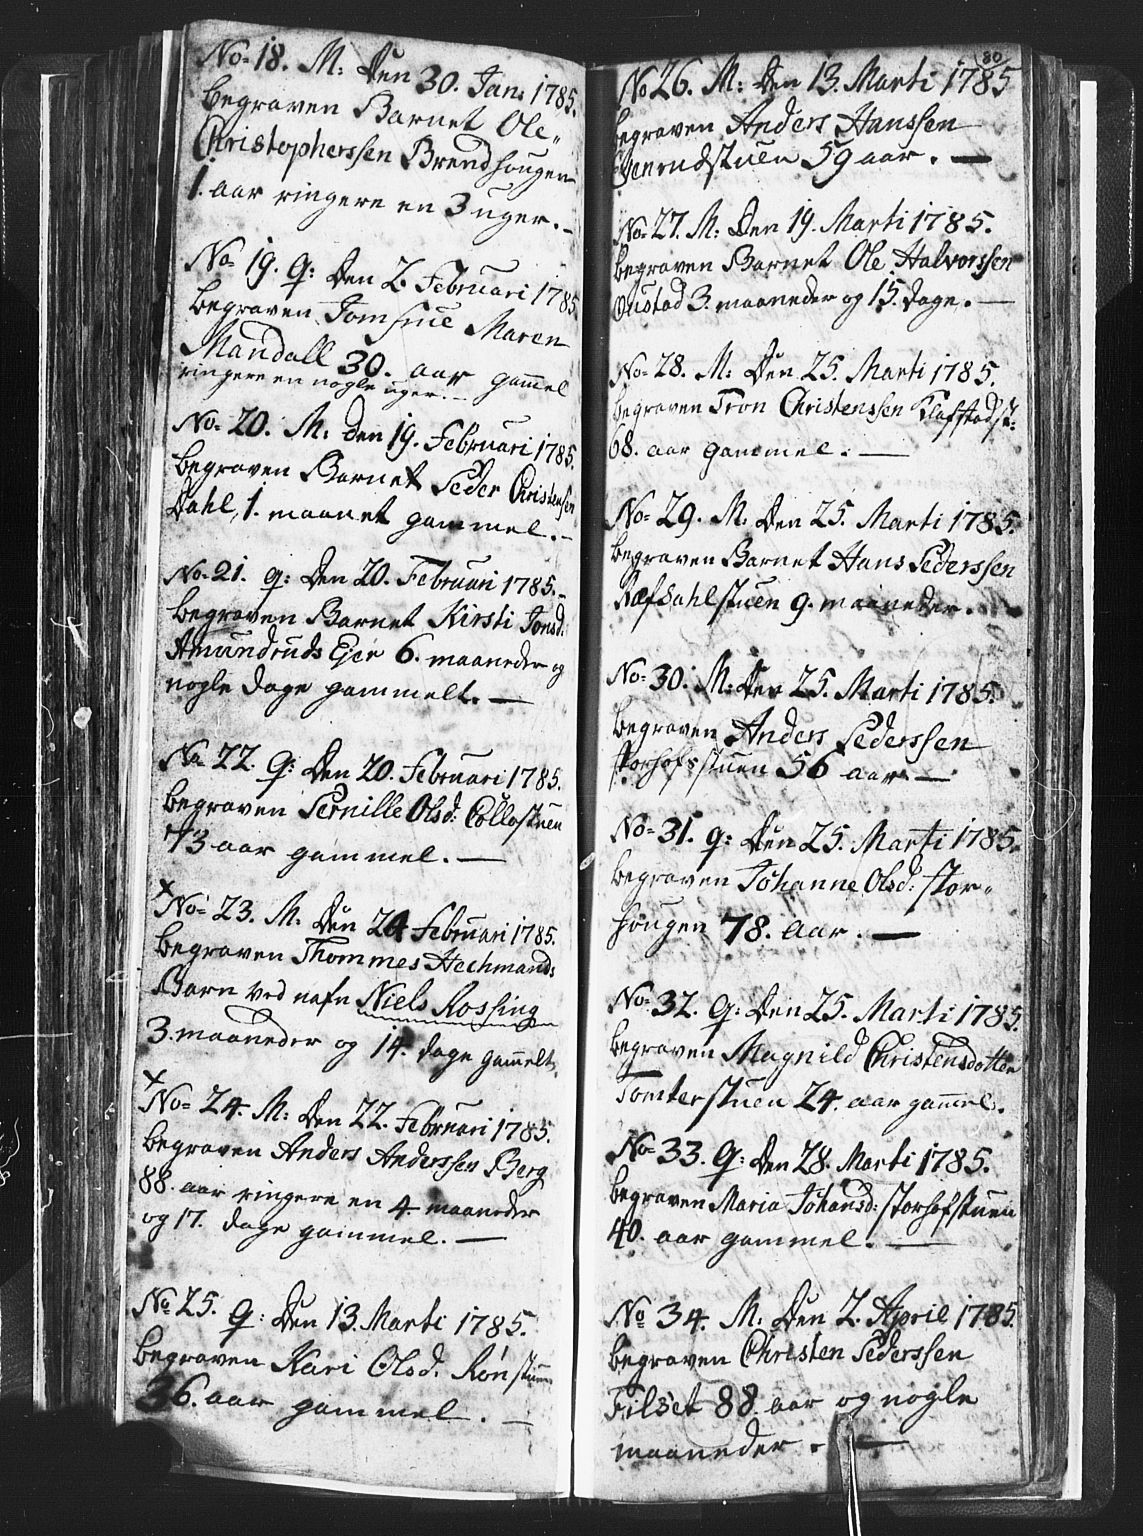 No 18. M: Den 30. Jan: 1785.
begraven Barnet Ole
Christopherssen Brendhougen
1. aar ringere en 3 uger.
No 19. Q: Den 2. Februari 1785
begraven Jomfrue Maren
Mandall 30. aar gammel
ringere en nogle uger.
No 20. M: den 19. Februari 1785.
begraven Barnet Peder Christensen
Dahl, 1. maanet gammel.
No 21. Q: Den 20. Februari 1785.
begraven Barnet Kirsti Jonsd:
Amundruds Ejer 6. maaneder og
nogle dage gammelt.
No 22. Q: Den 20. Februari 1785.
begraven Pernille Olsd: Collostuen
73 aar gammel.
No 23. M. Den 20 Februari 1785.
begraven Thommes Hechmands
Barn ved nafn Niels Rossing
3. maaneder og 14. dage gammelt.
No 24. M: Den 22. Februari 1785.
begraven Anders Anderssen Berg
88. aar ringere en 4. maaneder
og 17. dage gammel.
No 25. Q: Den 13. Marti 1785.
begraven Kari Olsd. Rønstuen
36. aar gammel.
80
No 26. M: Den 13. Marti 1785
begraven Anders Hanssen
59 aar.
No 27. M: Den 19. Marti 1785.
begraven Barnet Ole Halvorssen
3. maaneder og 15. dage.
No 28. M: Den 25. Marti 1785.
begraven Tron Christenssen Kloffstadst:
68. aar gammel.
No 29. M. Den 25. Marti 1785.
begraven Barnet Hans Pederssen
Refsahlstuen 9. maaneder.
No 30. M: Den 25. Marti 1785.
begraven Anders Pederssen
Storhofsstuen 56 aar
No 31. Q: Den 25. Marti 1785.
begraven Johanne Olsd: Stor-
hougen 78. aar.
No 32. Q: Den 25. Marti 1785.
begraven Magnild Christensdotter
Tomterstuen 24. aar gammel.
No 33. Q: Den 28. Marti 1785.
begraven Maria Johansd: Storhofstuen
40. aar gammel.
No 34. M. Den 2. April 1785.
begraven Christen Pederssen
Filset 88 aar og nogle
maaneder.